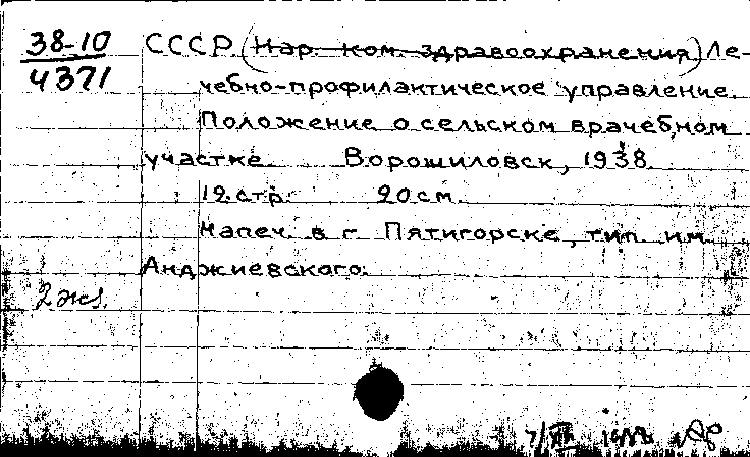 38-10
4371
СССР (Нар. ком. здравоохранения) Ле-
чебно-профилактическое управление.
Положение о сельском врачебном
участке. Ворошиловск, 1938.
12 стр. 20 см.
Напеч. в г. Пятигорске, тип. им.
Анджиевского.
2 экз.
7/XII